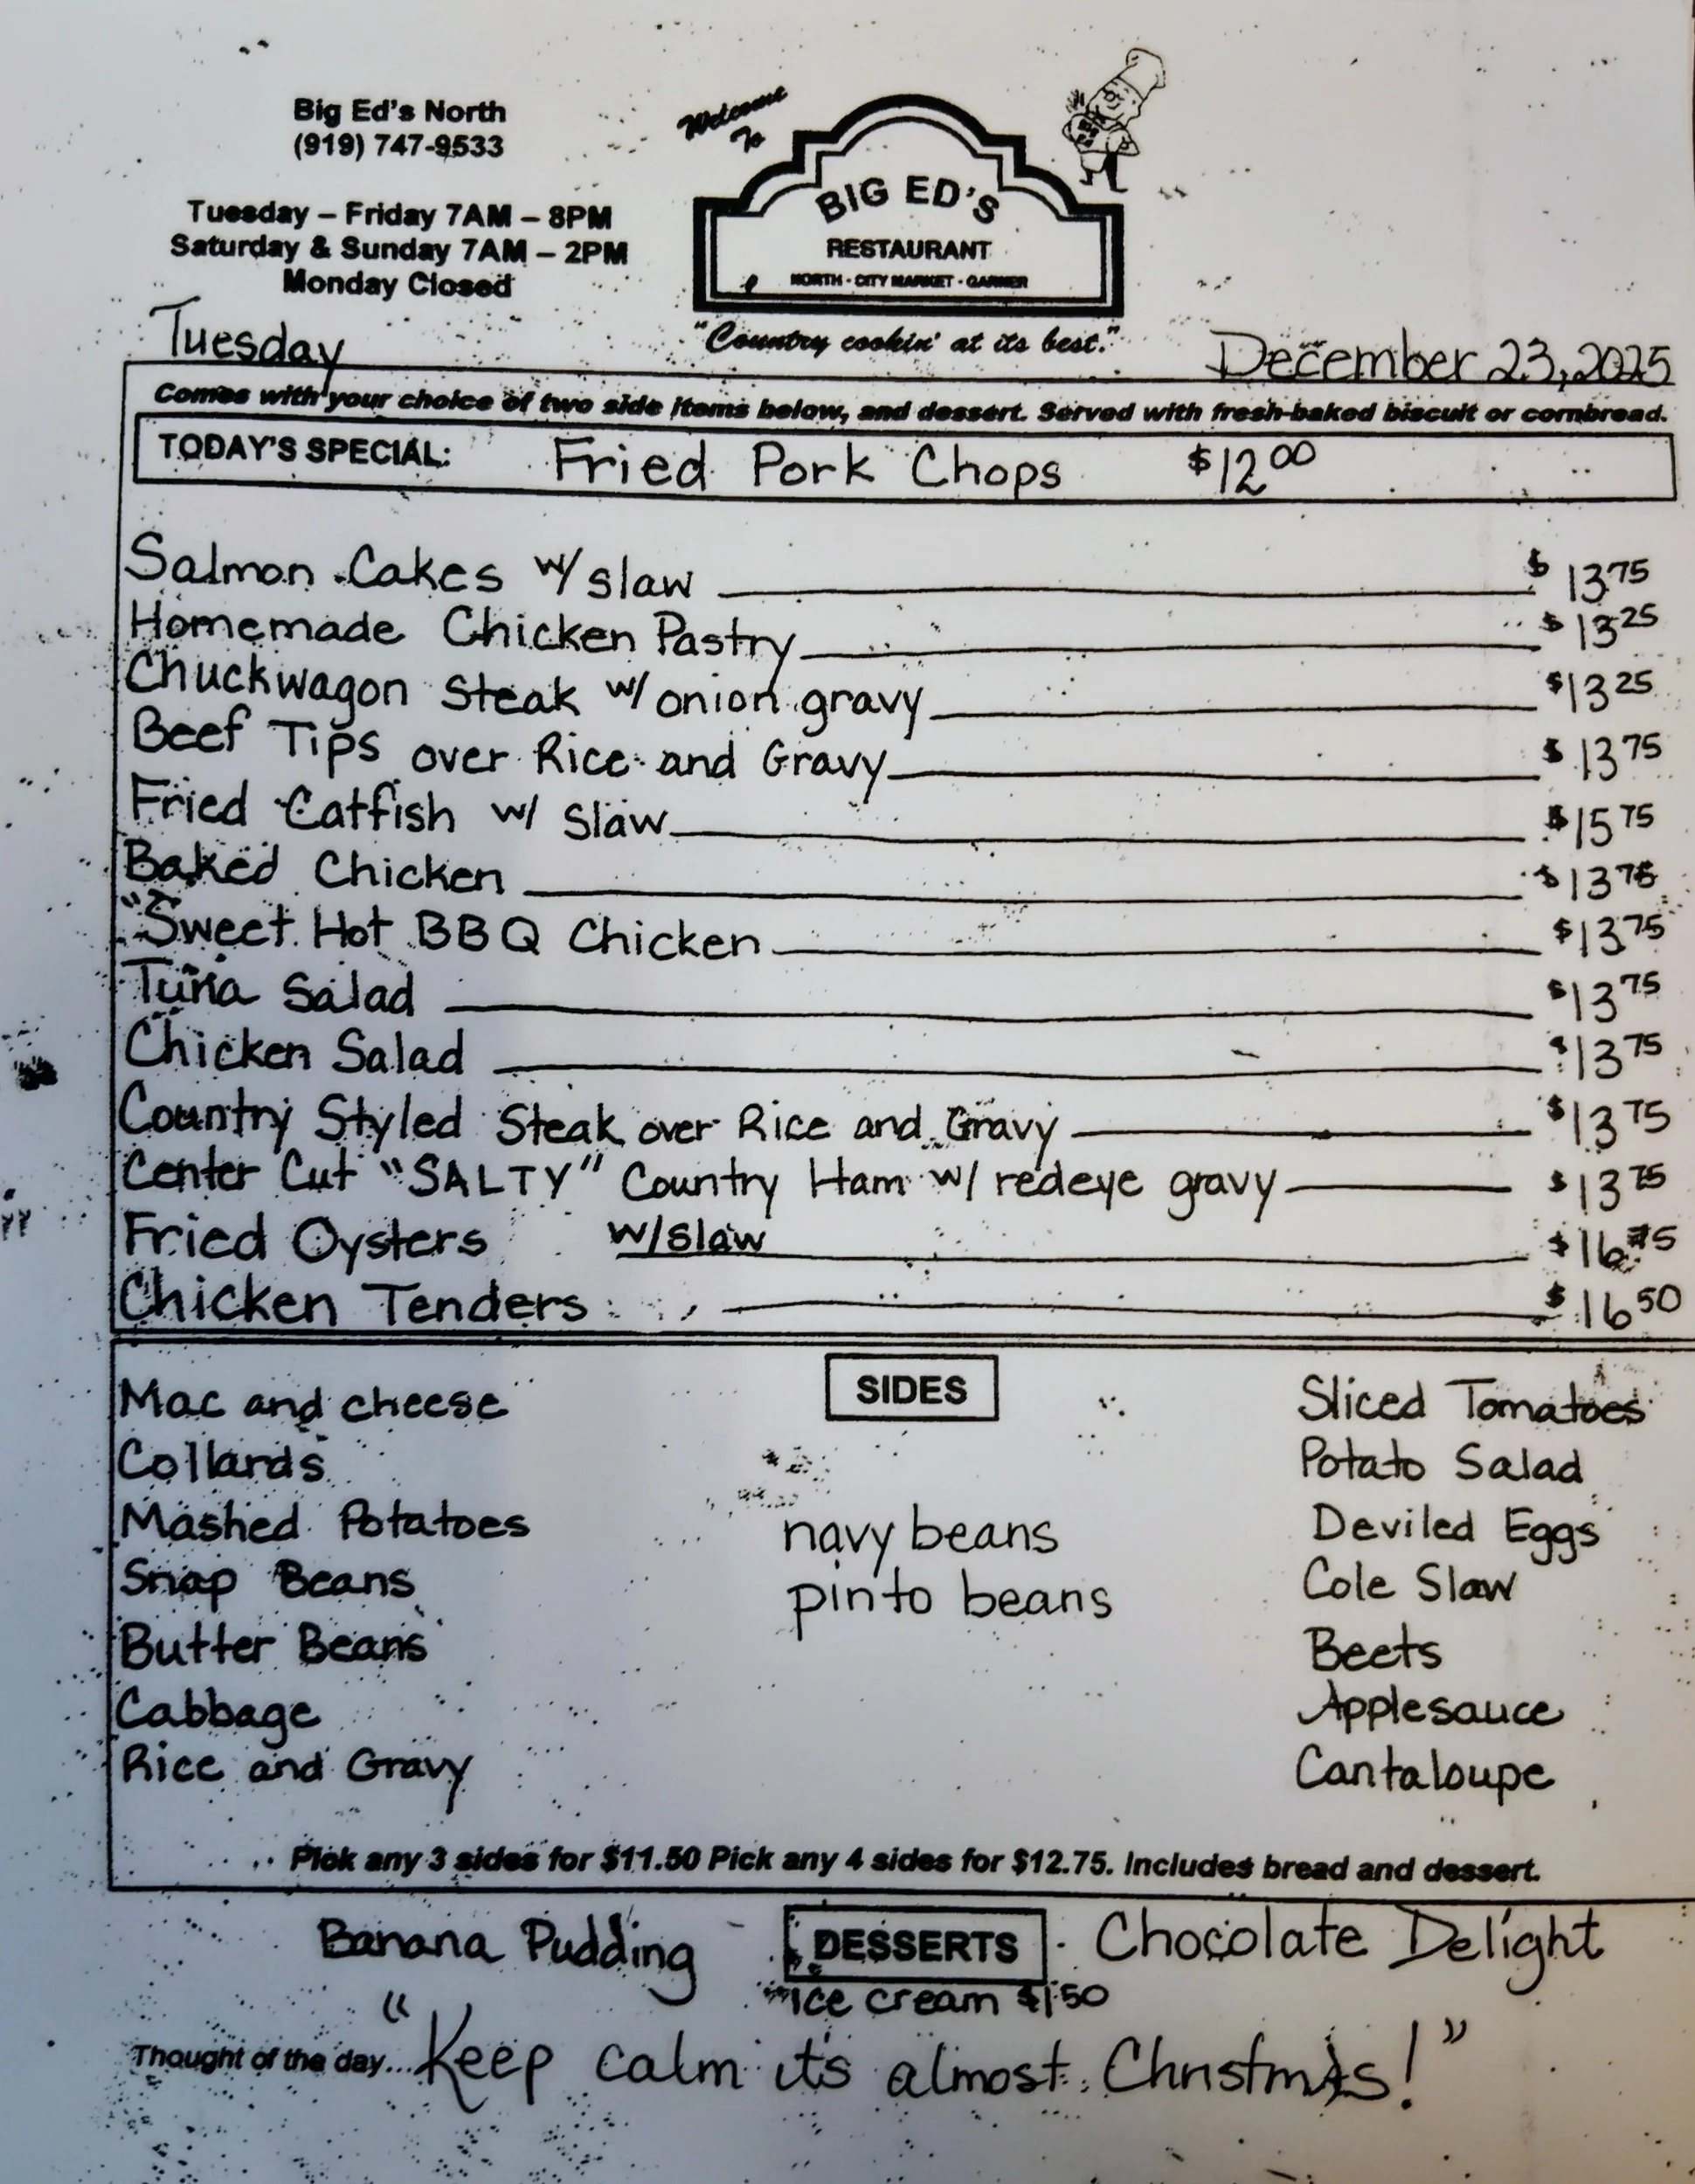 Big Ed's North
(919) 747-9533
Tuesday – Friday 7AM – 8PM
Saturday & Sunday 7AM – 2PM
Monday Closed
Welcome
To
BIG ED'S
RESTAURANT
NORTH - CITY MARKET - GARNER
"Country cookin' at its best."
Tuesday
December 23, 2025
Comes with your choice of two side items below, and dessert. Served with fresh-baked biscuit or cornbread.
TODAY'S SPECIAL: Fried Pork Chops $12 00
Salmon Cakes w/ slaw $ 13 75
Homemade Chicken Pastry $ 13 25
Chuckwagon Steak w/ onion gravy $13 25
Beef Tips over Rice and Gravy $ 13 75
Fried Catfish w/ Slaw $15 75
Baked Chicken $13 75
"Sweet Hot BBQ Chicken $13 75
Tuna Salad $13 75
Chicken Salad $13 75
Country Styled Steak over Rice and Gravy $13 75
Center Cut "SALTY" Country Ham w/ redeye gravy $13 75
Fried Oysters w/slaw $16 75
Chicken Tenders $16 50
SIDES
Mac and cheese
Collards
Mashed Potatoes
Snap Beans
Butter Beans
Cabbage
Rice and Gravy
navy beans
pinto beans
Sliced Tomatoes
Potato Salad
Deviled Eggs
Cole Slaw
Beets
Applesauce
Cantaloupe
Pick any 3 sides for $11.50 Pick any 4 sides for $12.75. Includes bread and dessert.
Banana Pudding DESSERTS Chocolate Delight
ice cream $1 50
Thought of the day... "Keep calm it's almost Christmas!"